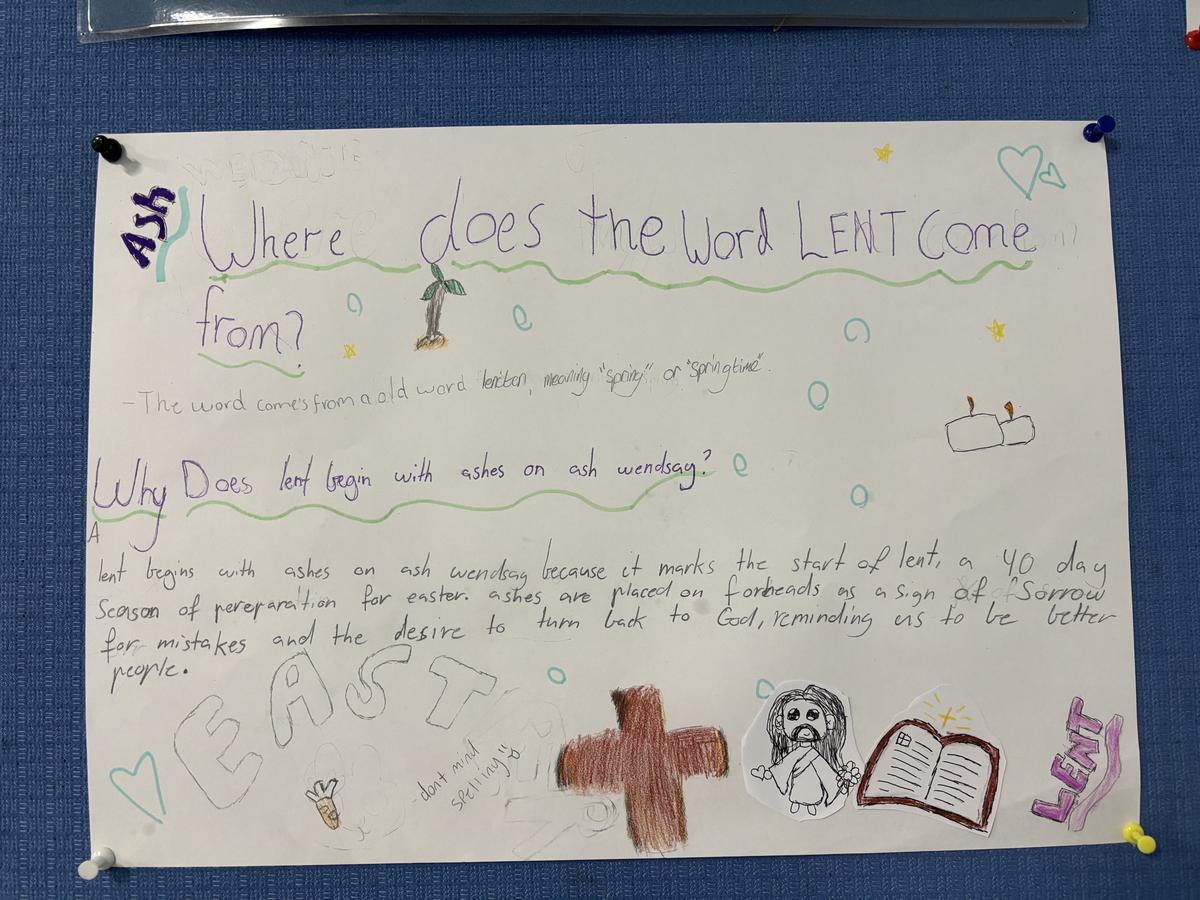 Ash
Where does the Word LENT Come
from?
- The word come's from a old word lencten, meaning "spring" or "springtime".
Why Does lent begin with ashes on ash wendsay?
A
lent begins with ashes on ash wendsay because it marks the start of lent, a 40 day
Season of pereparation for easter. ashes are placed on forheads as a sign of Sorrow
for mistakes and the desire to turn back to God, reminding us to be better
people.
EAST
- dont mind
spelling"
LENT